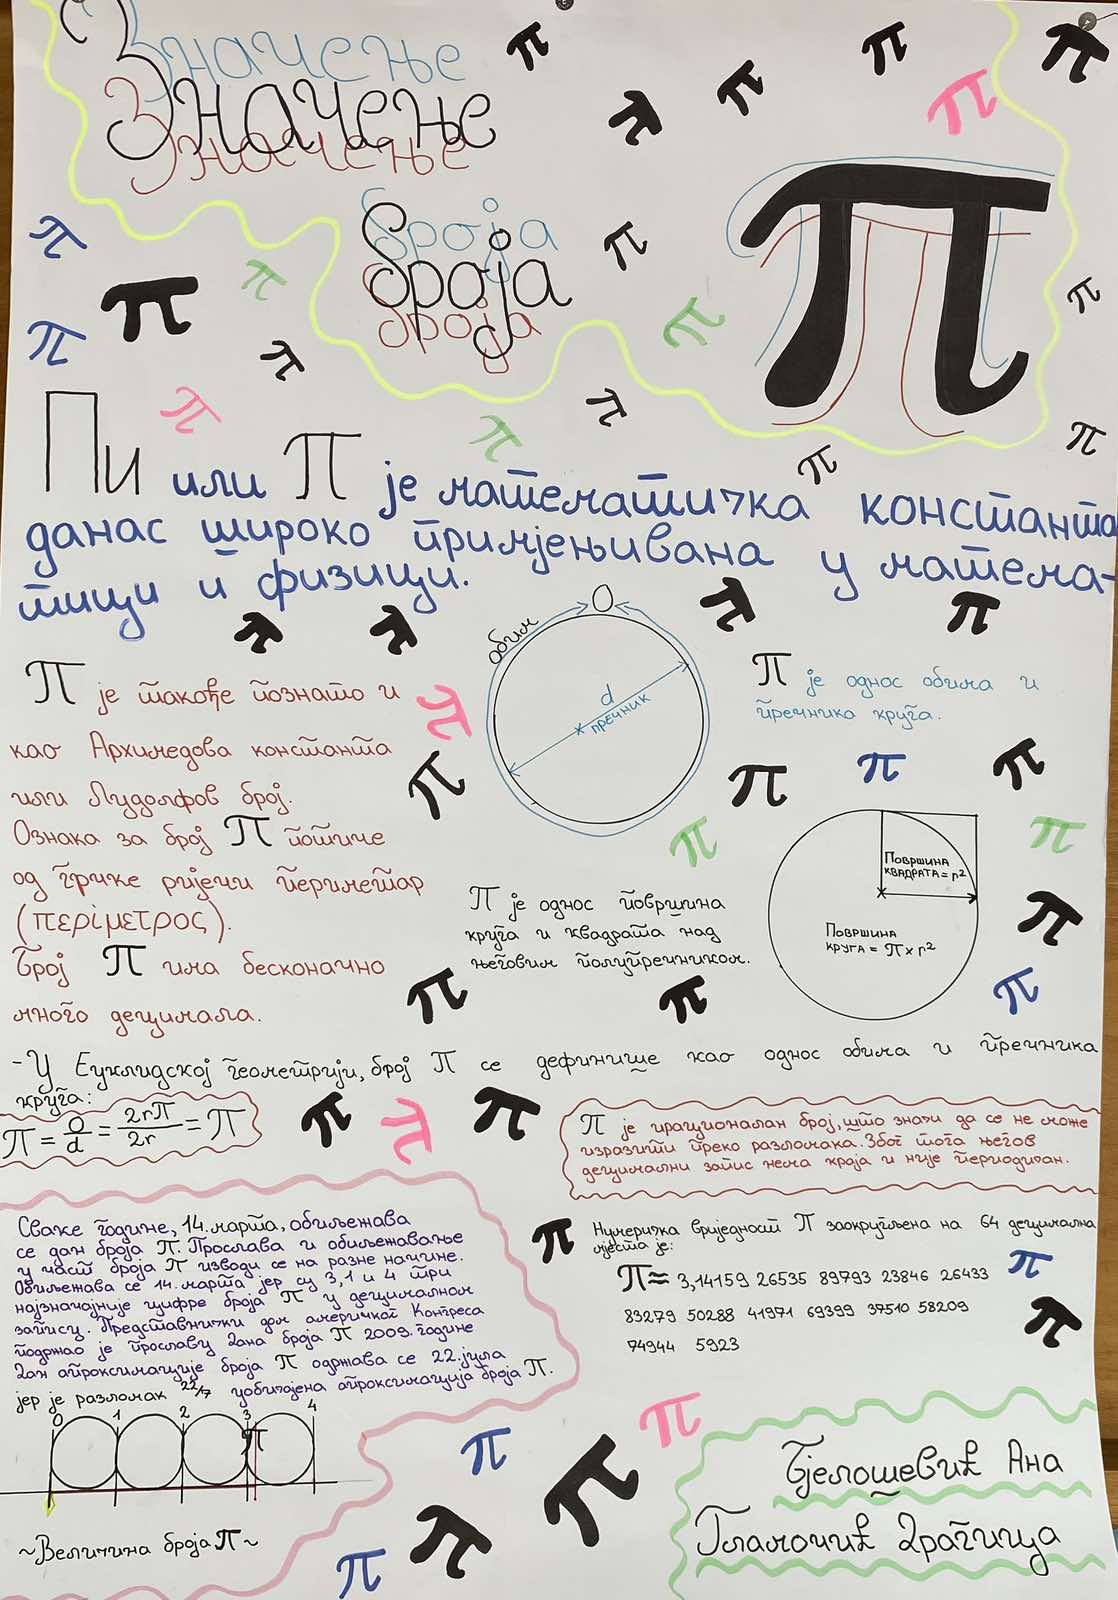 Значење
броја
π
Пи или π је математичка константа
данас широко примјењивана у матема-
тици и физици.
О
обим
d
пречник
π је такође познато и
као Архимедова константа
или Лудолфов број.
Ознака за број π потиче
од грчке ријечи периметар
(περίμετρος).
Број π има бесконачно
много децимала.
π је однос обима и
пречника круга.
π је однос површина
круга и квадрата над
његовим полупречником.
Површина
квадрата = r²
Површина
круга = π x r²
- У Еуклидској геометрији, број π се дефинише као однос обима и пречника
круга:
π = O/d = 2rπ/2r = π
π је ирационалан број, што значи да се не може
изразити преко разломака. Због тога његов
децимални запис нема краја и није периодичан.
Сваке године, 14. марта, обиљежава
се дан броја π. Прослава и обиљежавање
у част броја π изводи се на разне начине.
Обиљежава се 14. марта јер су 3, 1 и 4 три
најзначајније цифре броја π у децималном
запису. Представнички дом америчког Конгреса
подржао је прославу Дана броја π 2009. године
Дан апроксимације броја π одржава се 22. јула
јер је разломак 22/7 уобичајена апроксимација броја π.
0 1 2 3 4
π
~Величина броја π~
Нумеричка вриједност π заокружена на 64 децимална
мјеста је:
π ≈ 3,14159 26535 89793 23846 26433
83279 50288 41971 69399 37510 58209
74944 5923
Бјелошевић Ана
Гламочић Драгица